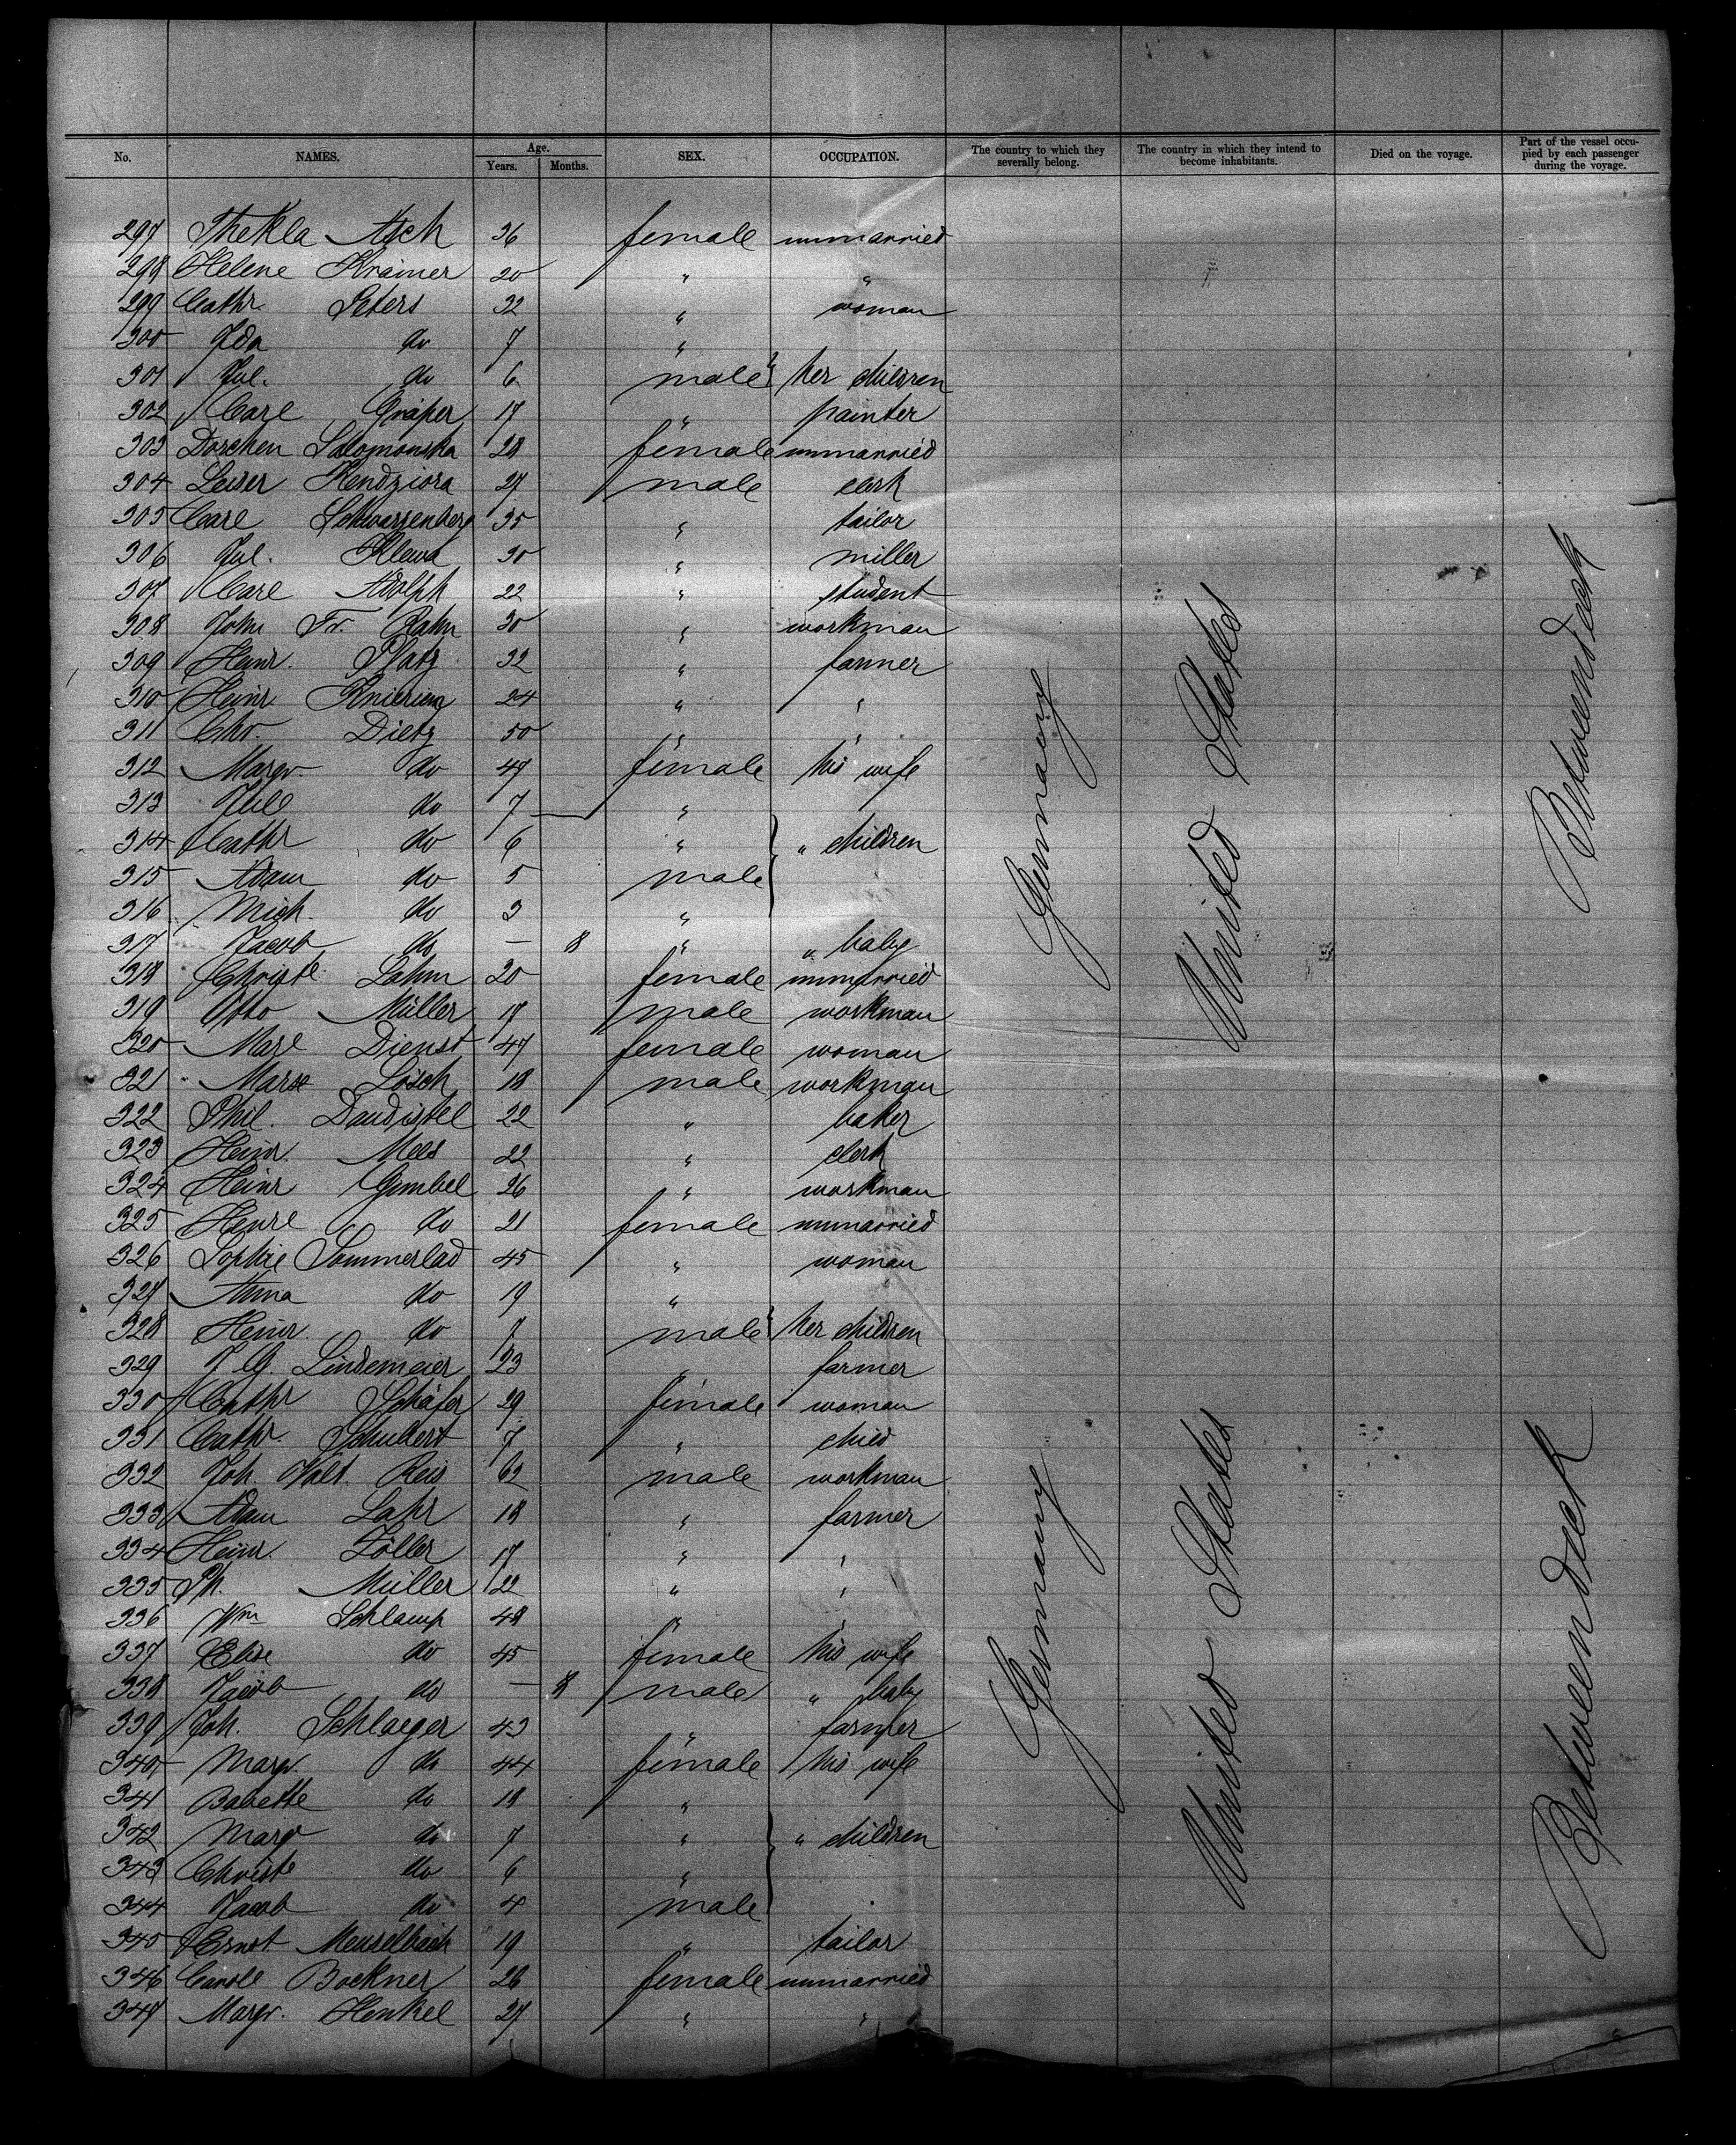 No. NAMES. Age. Years. Months. SEX. OCCUPATION. The country to which they severally belong. The country in which they intend to become inhabitants. Died on the voyage. Part of the vessel occupied by each passenger during the voyage.
297 Thekla Asch 36 female unmarried
298 Helene Krämer 20 " "
299 Cathr. Peters 32 " woman
300 Ida do 7 "
301 Jul. do 6 male } her children
302 Carl Gräper 17 " painter
303 Dorchen Salomonska 28 female unmarried
304 Leiser Kendziora 27 male clerk
305 Carl Schwarzenberg 35 " tailor
306 Jul. Klewa 30 " miller
307 Carl Adolph 22 " student
308 John Fr. Rahn 30 " workman
309 Heinr. Platz 32 " farmer
310 Heinr. Knierim 24 " "
311 Chr. Dietz 50 " "
312 Margr. do 47 female his wife
313 Jul do 7 "
314 Cathr do 6 " } " children
315 Adam do 5 male
316 Mich. do 3 "
317 Jacob do — 8 " " baby
318 Christe Lahm 20 female unmarried
319 Otto Müller 17 male workman
320 Marl Dienst 47 female woman
321 Lösch 18 male workman
322 Phil. Daudistel 22 " baker
323 Heinr. Mees 22 " clerk
324 Heinr Gimbel 26 " workman
325 Henre do 21 female unmarried
326 Sophie Sommerlad 45 " woman
327 Anna do 19 "
328 Heinr. do 7 male } her children
329 J. G. Lindemeier 23 " farmer
330 Cathr Schäfer 29 female woman
331 Cathr. Schubert 7 " child
332 Joh. Valt. Reis 62 male workman
333 Adam Lahr 18 " farmer
334 Heinr. Zöller 17 " "
335 Ph. Müller 22 " "
336 Wm Schlamp 48 " "
337 Elise do 45 female his wife
338 Jacob do — 8 male " baby
339 Joh. Schlaeger 43 " farmer
340 Margr. do 44 female his wife
341 Babette do 18 "
342 Margr do 7 " } " children
343 Christe do 6 "
344 Jacob do 4 male
345 Ernst Meuselbach 19 " tailor
346 Carole Bockner 26 female unmarried
347 Margr. Henkel 27 " "
Germany
United States
Betweendeck
Germany
United States
Betweendeck